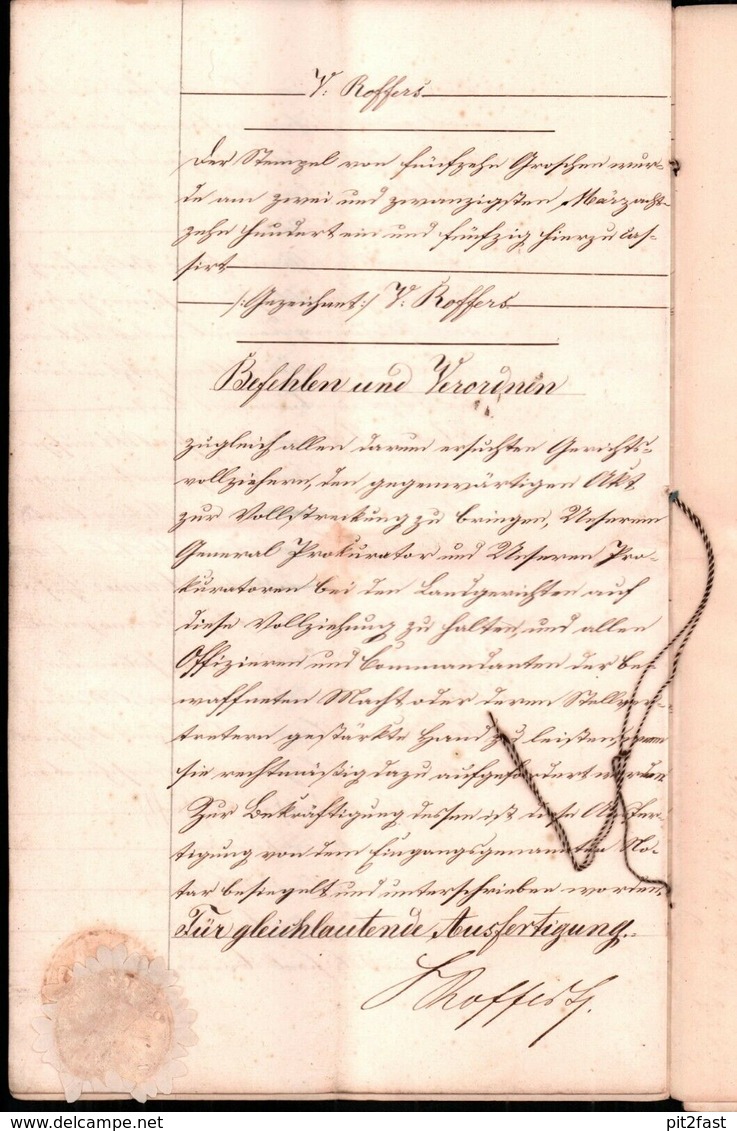 V: Roffers
Der Stempel von fünfzehn Groschen wur-
de am zwei und zwanzigsten März acht-
zehn hundert ein und fünfzig hierzu cas-
sirt
/:Gezeichnet:/ V: Roffers
Befehlen und Verordnen
zugleich allen darum ersuchten Gerichts-
vollziehern, den gegenwärtigen Akt
zur Vollstreckung zu bringen, Unserem
General Prokurator und Unseren Pro-
kuratoren bei den Landgerichten auf
diese Vollziehung zu halten, und allen
Offizieren und Commandanten der be-
waffneten Macht oder deren Stellver-
tretern gestärkte Hand zu leisten, wenn
sie rechtmäßig dazu aufgefordert werden.
Zur Bekräftigung dessen ist diese Ausfer-
tigung von dem Eingangsgenannten No-
tar besiegelt und unterschrieben worden.
Für gleichlautende Ausfertigung.
Roffers
pit2fast